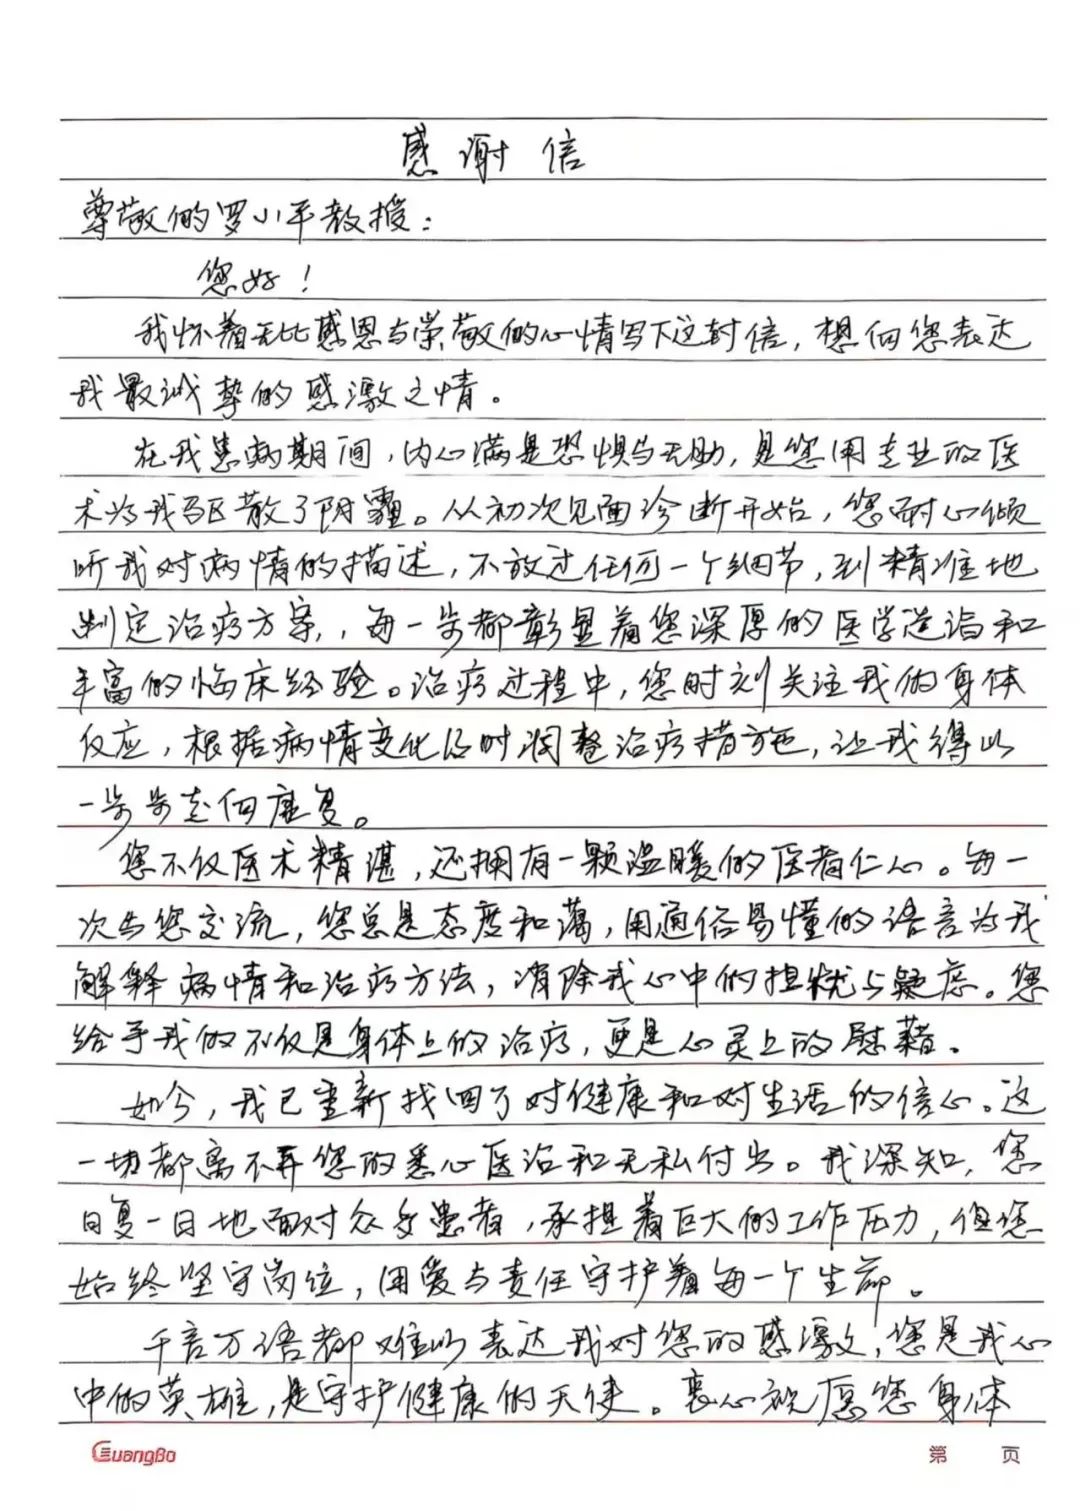 感谢信
尊敬的罗小平教授：
您好！
我怀着无比感恩与崇敬的心情写下这封信，想向您表达
我最诚挚的感激之情。
在我患病期间，内心满是恐惧与无助，是您用专业的医
术为我驱散了阴霾。从初次见面诊断开始，您耐心倾
听我对病情的描述，不放过任何一个细节，到精准地
制定治疗方案，，每一步都彰显着您深厚的医学造诣和
丰富的临床经验。治疗过程中，您时刻关注我的身体
反应，根据病情变化及时调整治疗措施，让我得以
一步步走向康复。
您不仅医术精湛，还拥有一颗温暖的医者仁心。每一
次与您交流，您总是态度和蔼，用通俗易懂的语言为我
解释病情和治疗方法，消除我心中的担忧与疑虑。您
给予我的不仅是身体上的治疗，更是心灵上的慰藉。
如今，我已重新找回了对健康和对生活的信心。这
一切都离不开您的悉心医治和无私付出。我深知，您
日复一日地面对众多患者，承担着巨大的工作压力，但您
始终坚守岗位，用爱与责任守护着每一个生命。
千言万语都难以表达我对您的感激，您是我心
中的英雄，是守护健康的天使。衷心祝愿您身体
GuangBo
第 页